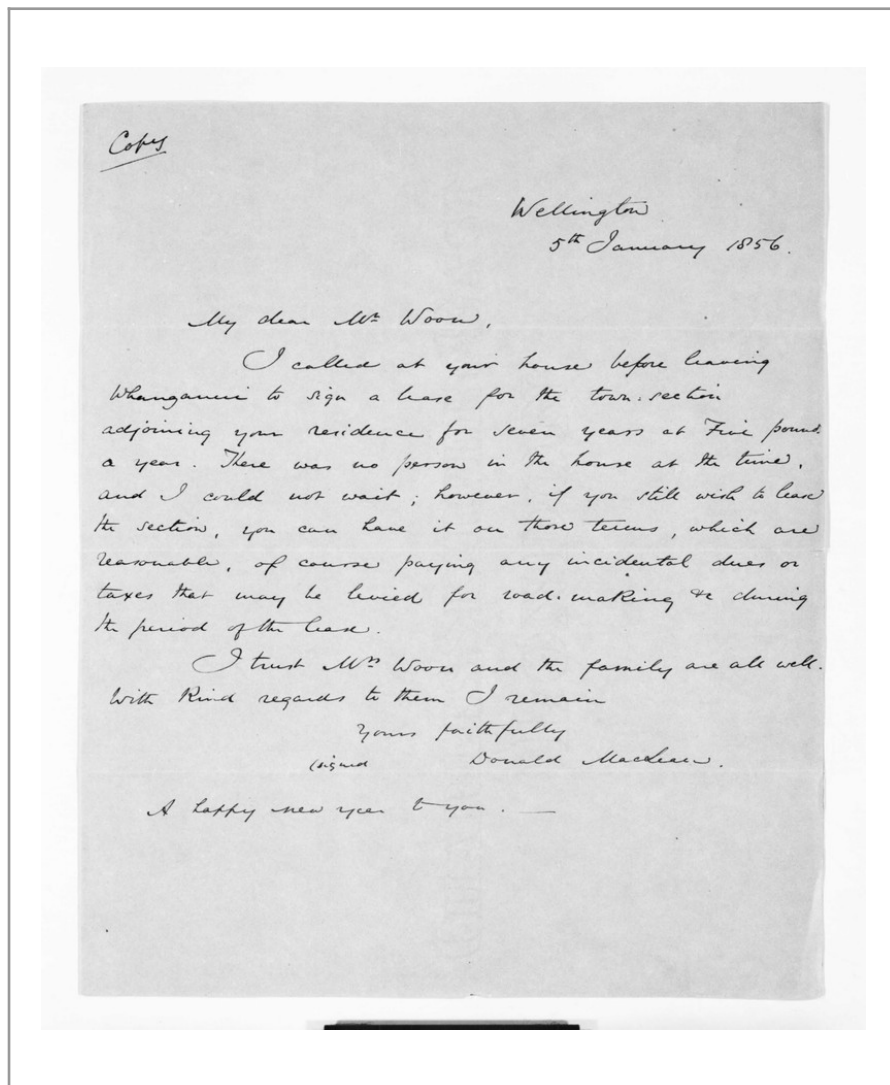 Copy
Wellington
5th January 1856.
My dear Mr Woon,
I called at your house before leaving
Whanganui to sign a lease for the town-section
adjoining your residence for seven years at Five pound
a year. There was no person in the house at the time,
and I could not wait; however, if you still wish to lease
the section, you can have it on those terms, which are
reasonable, of course paying any incidental dues or
taxes that may be levied for road-making &c during
the period of the lease.
I trust Mrs Woon and the family are all well.
With kind regards to them I remain
Yours faithfully
(signed Donald MacLean.
A happy new year to you. —